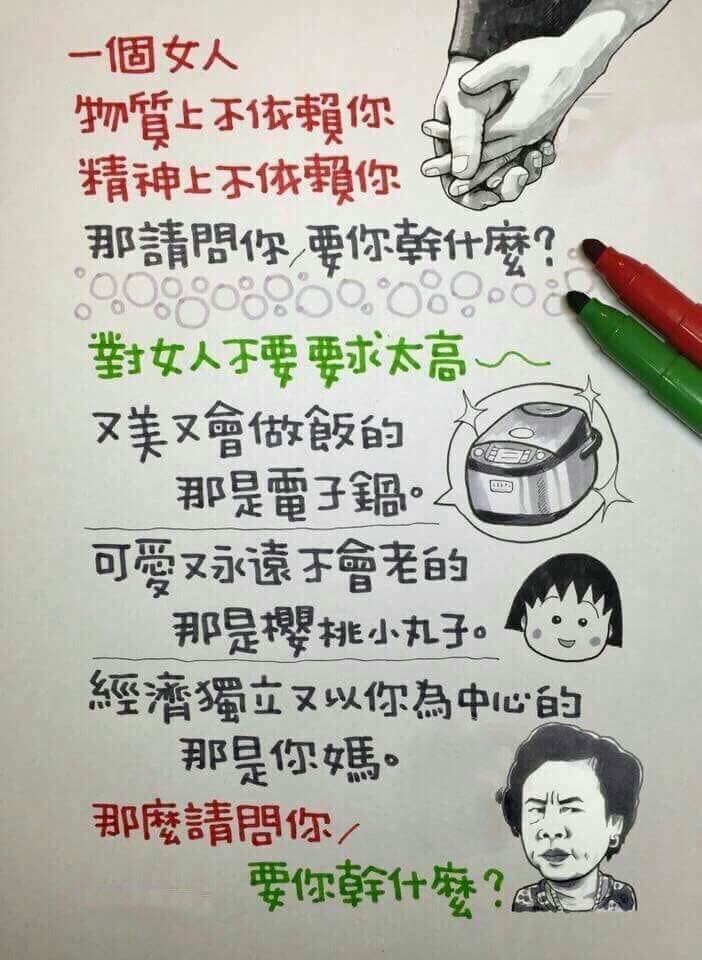 一個女人
物質上不依賴你
精神上不依賴你
那請問你，要你幹什麼？
對女人不要要求太高～
又美又會做飯的
那是電子鍋。
可愛又永遠不會老的
那是櫻桃小丸子。
經濟獨立又以你為中心的
那是你媽。
那麼請問你，
要你幹什麼？